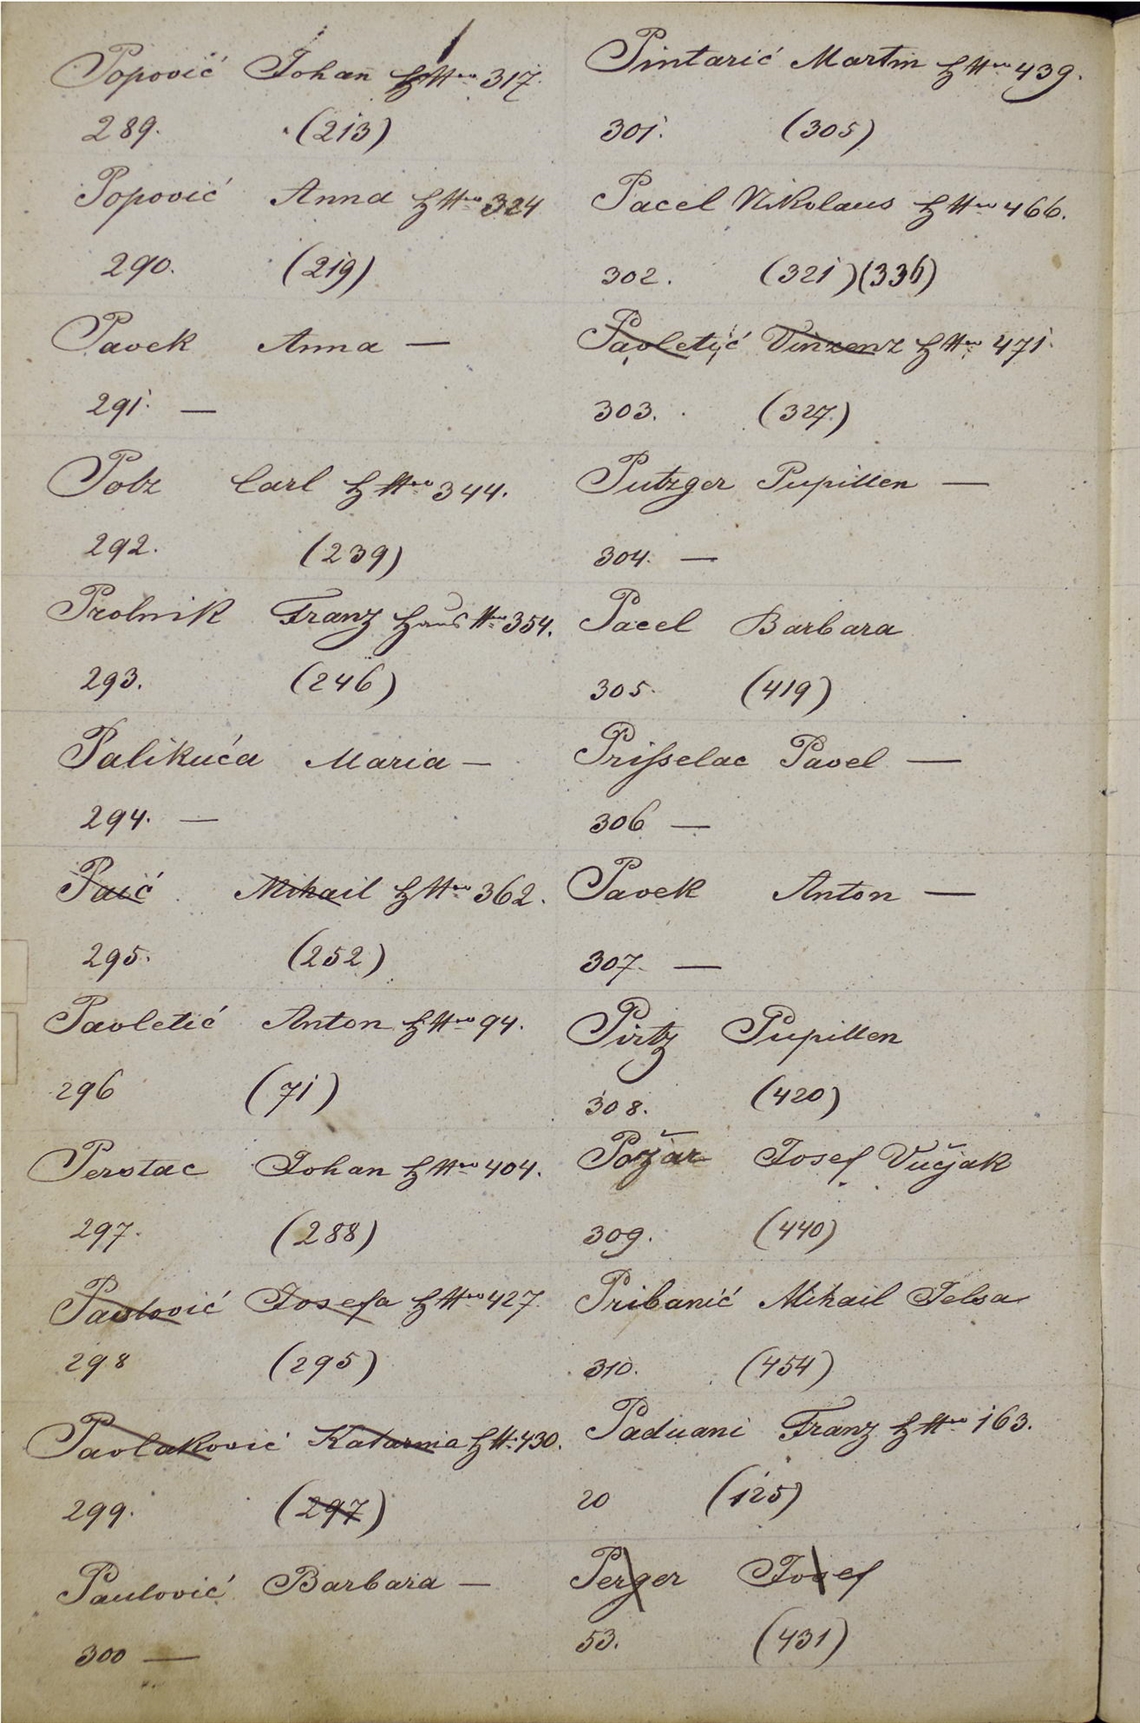 Popović Johan H Nro 317.
289. (213)
Popović Anna H Nro 324
290. (219)
Pavek Anna —
291. —
Polz Carl H Nro 344.
292. (239)
Prolnik Franz Haus Nro 354.
293. (246)
Palikuća Maria —
294. —
Paić Mihail H Nro 362.
295. (252)
Pavletić Anton H Nro 94.
296 (71)
Perstac Johan H Nro 404.
297. (288)
Pavlović Josefa H Nro 427.
298 (295)
Pavlaković Katarina H N 430.
299. (297)
Paulović Barbara —
300 —
Pintarić Martin H Nro 439.
301. (305)
Pacel Nikolaus H Nro 466.
302. (321) (336)
Pavletić Vinzenz H Nro 471
303. (327)
Putzger Pupillen —
304. —
Pacel Barbara
305. (419)
Prisselac Pavel —
306 —
Pavek Anton —
307. —
Pirtz Pupillen
308. (420)
Požar Josef Vučjak
309. (440)
Pribanić Mihail Jelsa
310. (454)
Paduani Franz H Nro 163.
20 (125)
Perger Josef
53. (431)